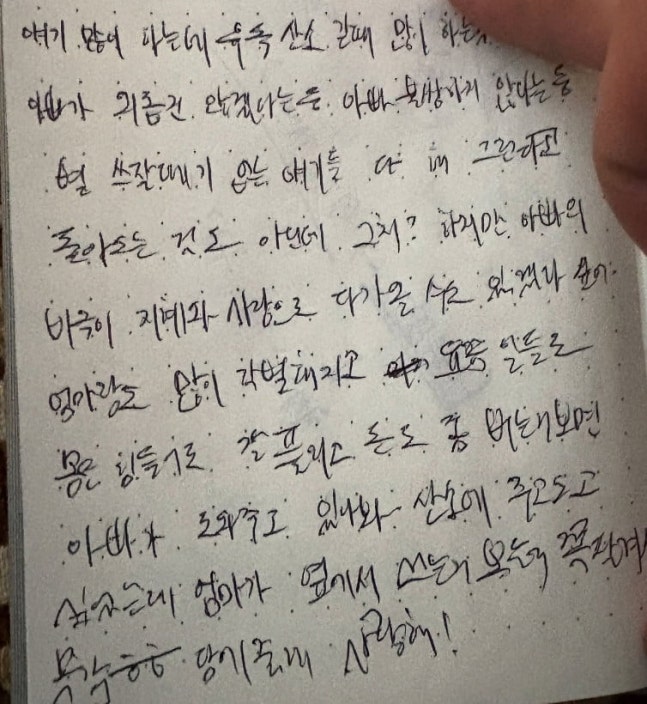 얘기 많이 하는데 유독 산소 갈때 많이 하는
아빠가 외롭진 않겠다는 둥 아빠 불쌍하지 않다는 둥
별 쓰잘데기 없는 얘기들 다 해 그런다고
돌아오는 것도 아닌데 그치? 하지만 아빠의
바국이 지혜와 사랑으로 다가올 수도 있겠다 싶어.
엄마랑도 많이 각별해지고 요즘 일들로
몸은 힘들어도 잘 풀리고 돈도 좀 버는거 보면
아빠가 도와주고 있나봐 산소에 두고오고
싶었는데 엄마가 옆에서 쓰는거 보는데
담에 줄게 사랑해!